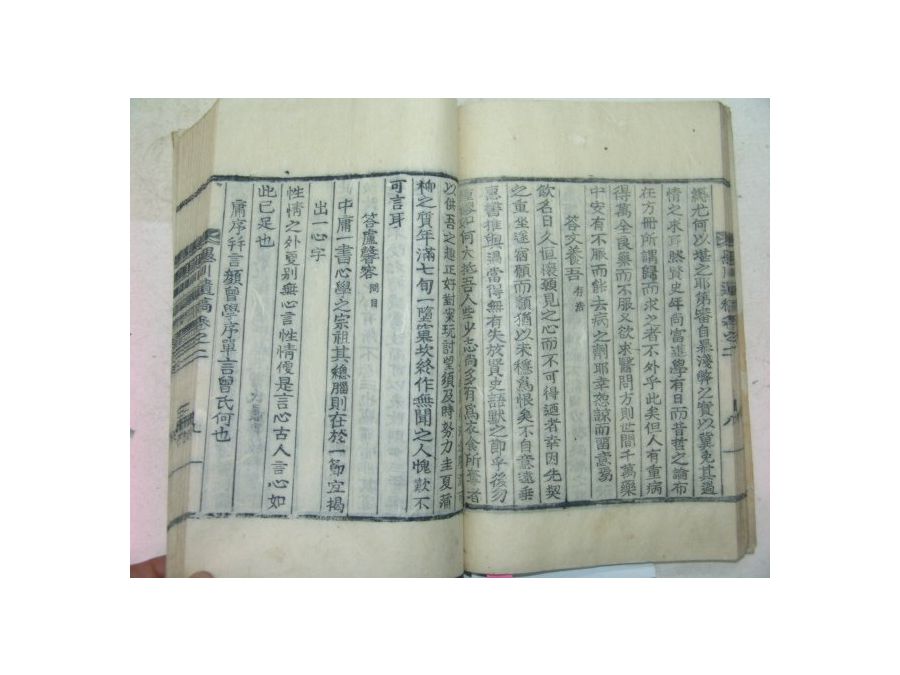 緦尤何以堪之耶第審自暴淺弊之實以冀免其過
情之求耳然賢史年尚富進學有日而昔哲之論布
在方冊所謂歸而求之者不外乎此矣但人有重病
得萬全良藥而不服又欲求醫問方則世間千萬藥
中安有不服而能去病之劑耶幸恕諒而留意焉
答文養吾
飮名日久恒懷願見之心而不可得廼者幸因先契
之重坐遂宿願而顧猶以未穩爲恨矣不自意遠垂
惠警雅興遇當得無有失放賢史語默之節乎後勿
如何大抵吾人些少志尚多有爲衣食所奪者
以供吾之趣正好對案玩討望須及時努力圭夏蒲
柳之質年滿七旬一墮窠坎終作無聞之人愧歎不
可言耳
答盧馨容 問目
中庸一書心學之宗祖其總腦則在於一節宜揭
出一心字
性情之外更別無心言性情便是言心古人言心如
此已足也
庸序幷言顔曾學序單言曾氏何也
川遺稿卷之二